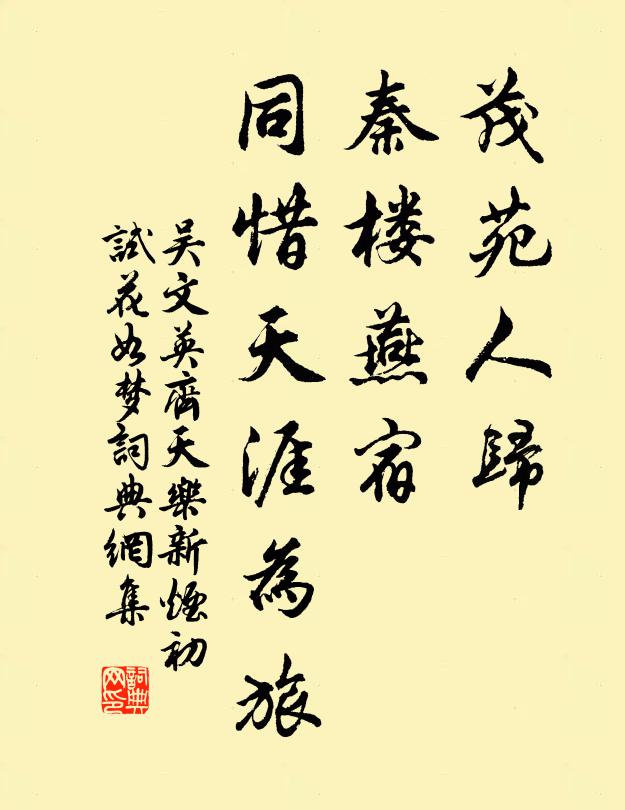 茂苑人歸
秦楼燕宿
同惜天涯為旅
吴文英齊天樂新煙初
試花如梦詞典網集
詞典网印